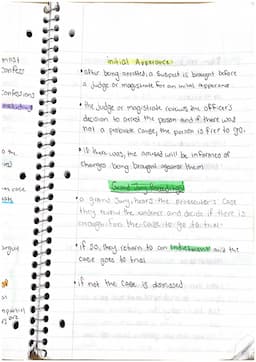 must
confess
confessions
including
Initial Apperance
• after being arrested, a suspect is brought before
a judge or magistrate for an initial apperance
• the judge or magistrate reviews the officer's
decision to arrest the person and if there was
not a probable cause, the person is free to go.
• if there was, the accused will be informed of
charges being brought against them
Grand Jury
• a grand jury, hears the prosecutor's case
they review the evidence and decide if there is
enough for the case to go to trial
• if so, they return to an indictment and the
case goes to trial
• if not the case is dismissed